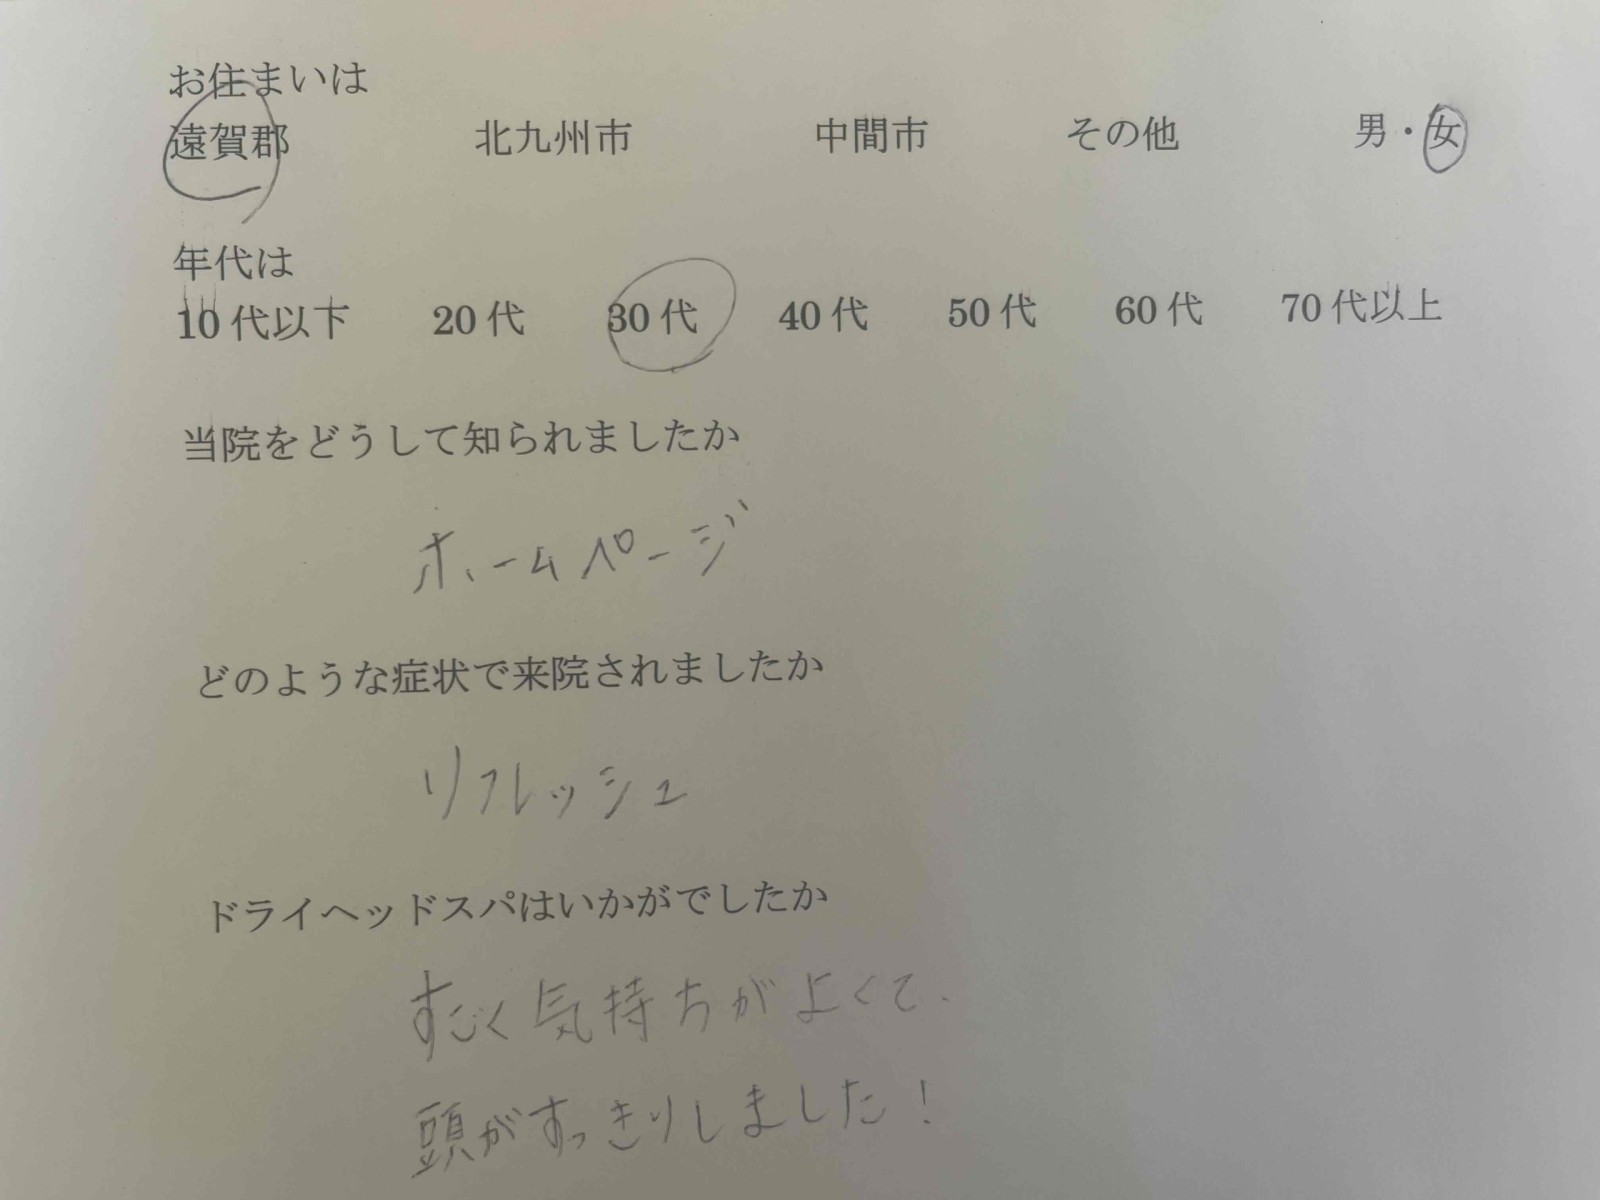 お住まいは
遠賀郡 北九州市 中間市 その他 男・女
年代は
10代以下 20代 30代 40代 50代 60代 70代以上
当院をどうして知られましたか
ホームページ
どのような症状で来院されましたか
リフレッシュ
ドライヘッドスパはいかがでしたか
すごく気持ちがよくて、
頭がすっきりしました!